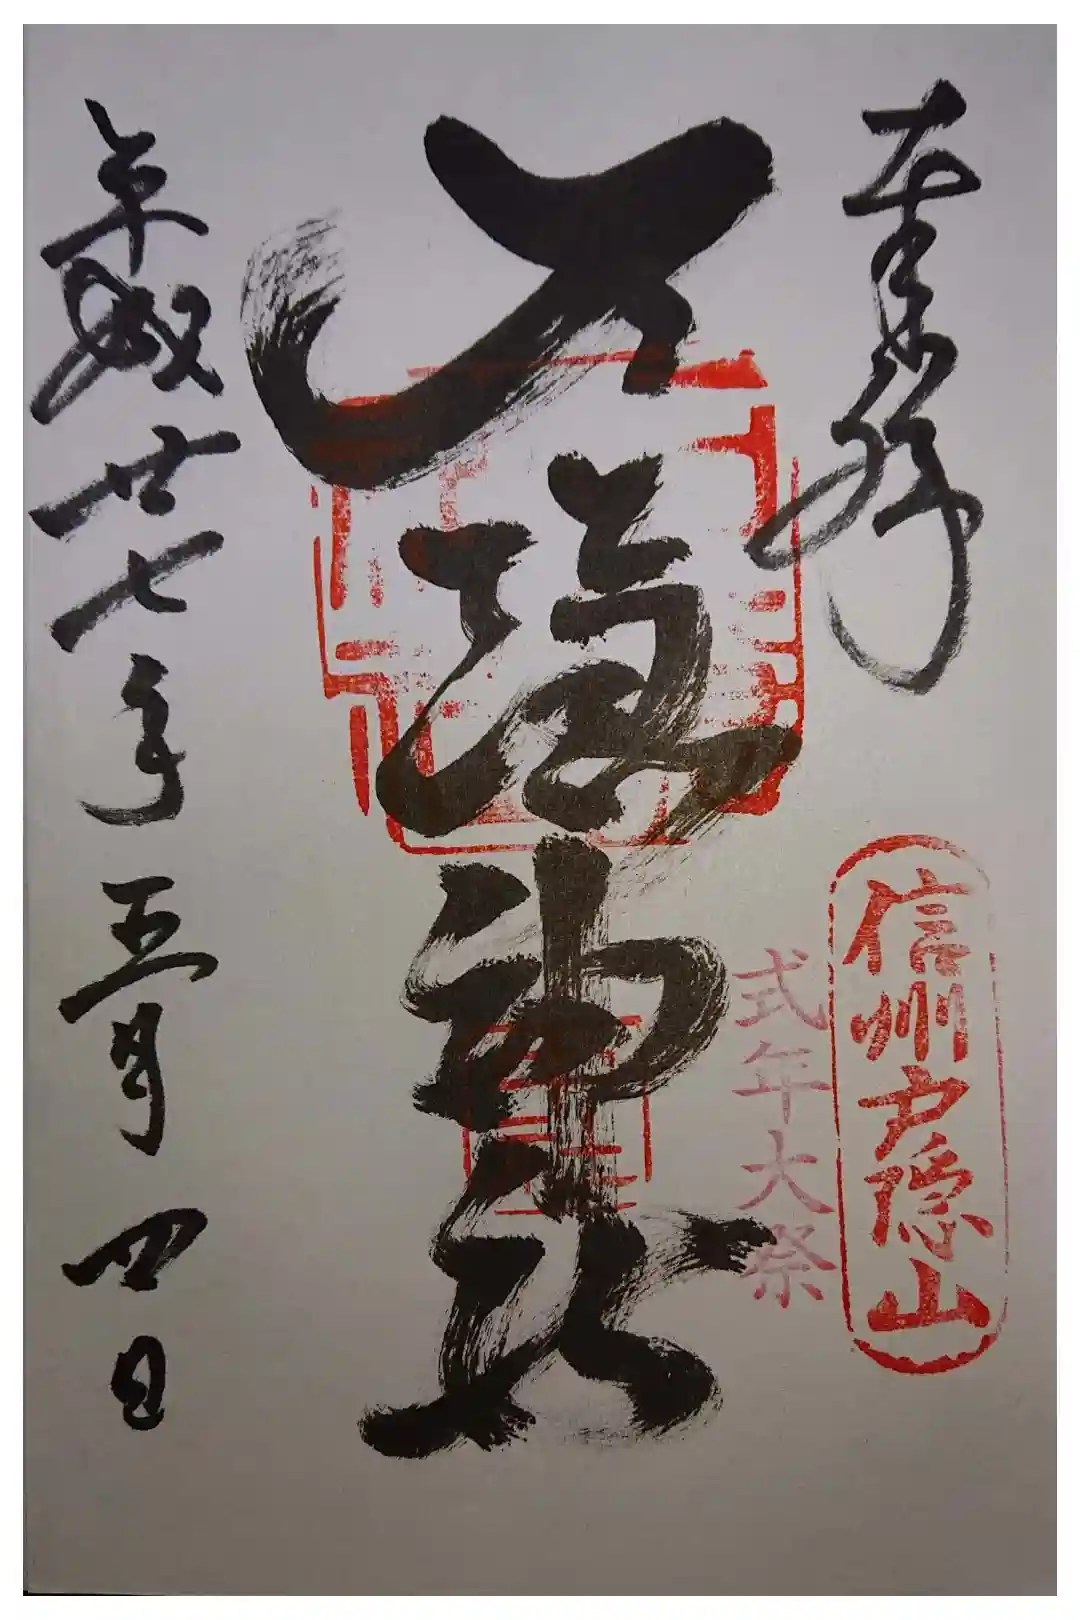 奉拝
信州戸隠山
式年大祭
戸隠神社
平成廿七年五月四日